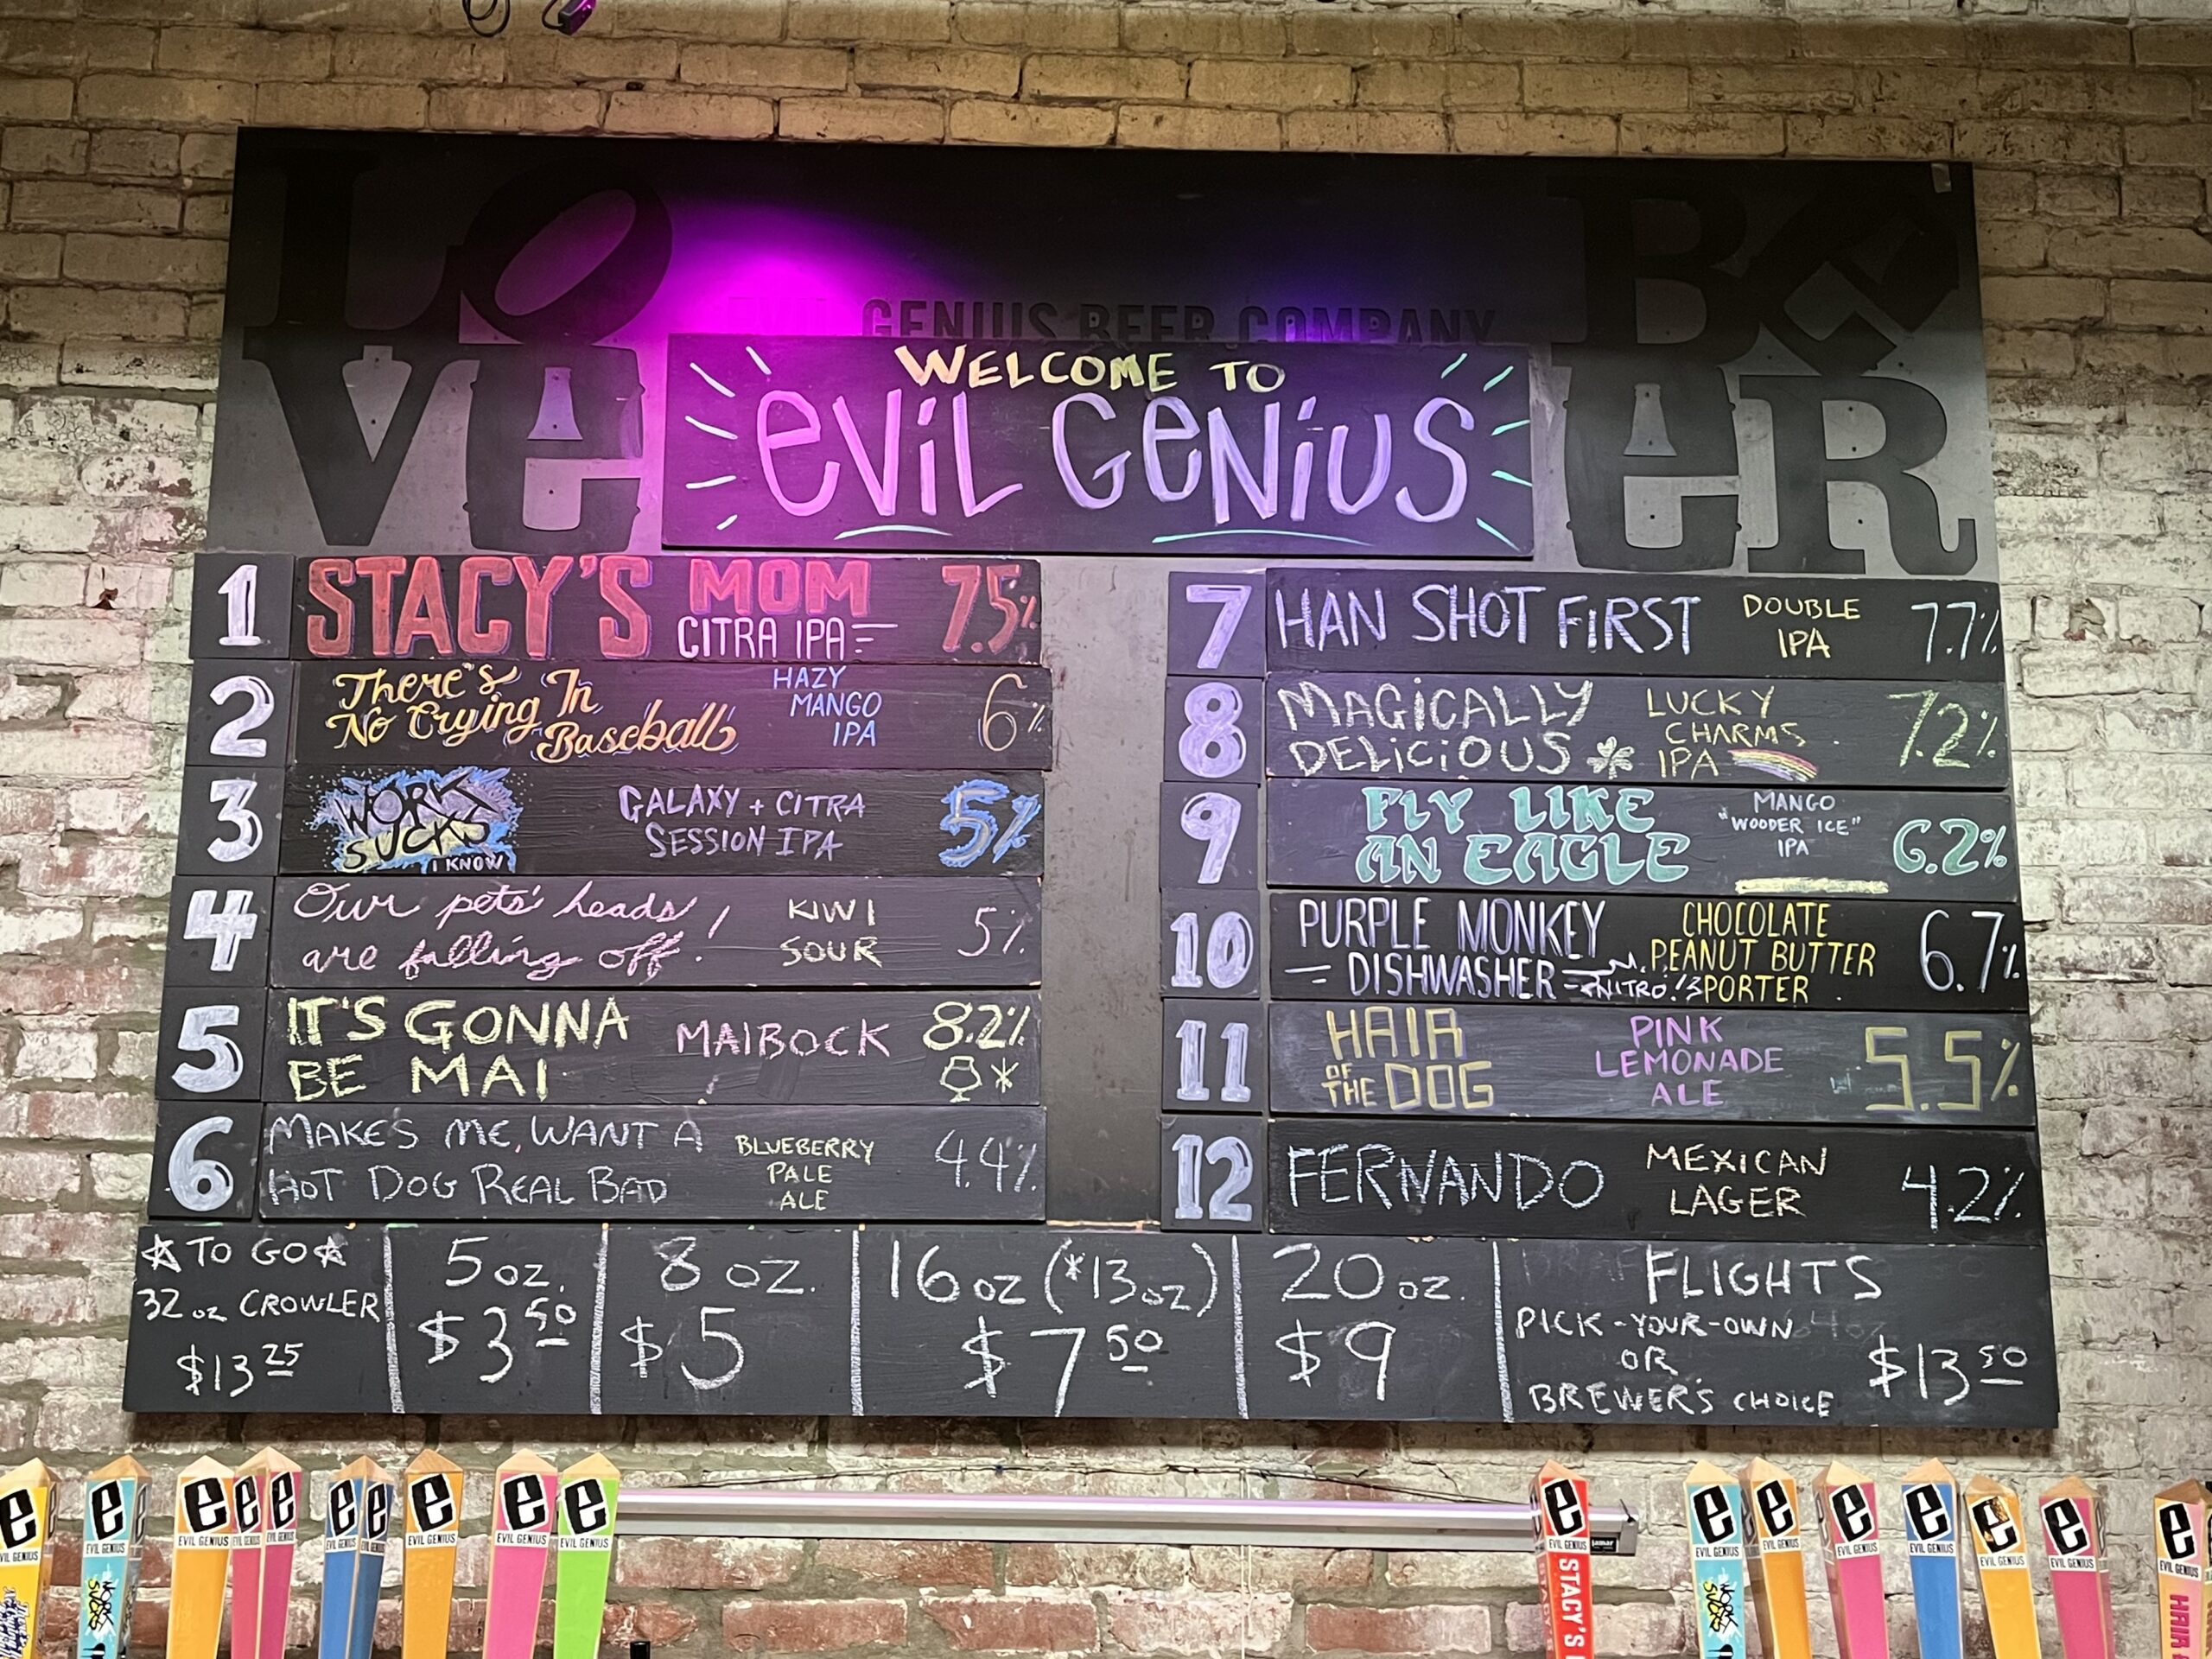 LOVE
BEER
GENIUS BEER COMPANY
WELCOME TO
EVIL GENIUS
1 STACY'S MOM CITRA IPA 7.5%
2 There's No Crying In Baseball HAZY MANGO IPA 6%
3 WORK SUCKS I KNOW GALAXY + CITRA SESSION IPA 5%
4 Our pets' heads are falling off! KIWI SOUR 5%
5 IT'S GONNA BE MAI MAIBOCK 8.2% *
6 MAKES ME WANT A HOT DOG REAL BAD BLUEBERRY PALE ALE 4.4%
7 HAN SHOT FIRST DOUBLE IPA 7.7%
8 MAGICALLY DELICIOUS LUCKY CHARMS IPA 7.2%
9 FLY LIKE AN EAGLE MANGO "WOODER ICE" IPA 6.2%
10 PURPLE MONKEY DISHWASHER NITRO! CHOCOLATE PEANUT BUTTER PORTER 6.7%
11 HAIR OF THE DOG PINK LEMONADE ALE 5.5%
12 FERNANDO MEXICAN LAGER 4.2%
☆ TO GO ☆
32 oz CROWLER
$13 25
5 oz.
$3 50
8 oz.
$5
16 oz (*13 oz)
$7 50
20 oz.
$9
FLIGHTS
PICK-YOUR-OWN
OR
BREWER'S CHOICE
$13 50
e EVIL GENIUS
e EVIL GENIUS WORK SUCKS
e EVIL GENIUS
e EVIL GENIUS
e EVIL GENIUS
e
e
e EVIL GENIUS
e EVIL GENIUS
e EVIL GENIUS
e EVIL GENIUS STACY'S
e EVIL GENIUS WORK SUCKS
e EVIL GENIUS
e EVIL GENIUS
e EVIL GENIUS
e EVIL GENIUS
e EVIL GENIUS
e EVIL GENIUS HAIR